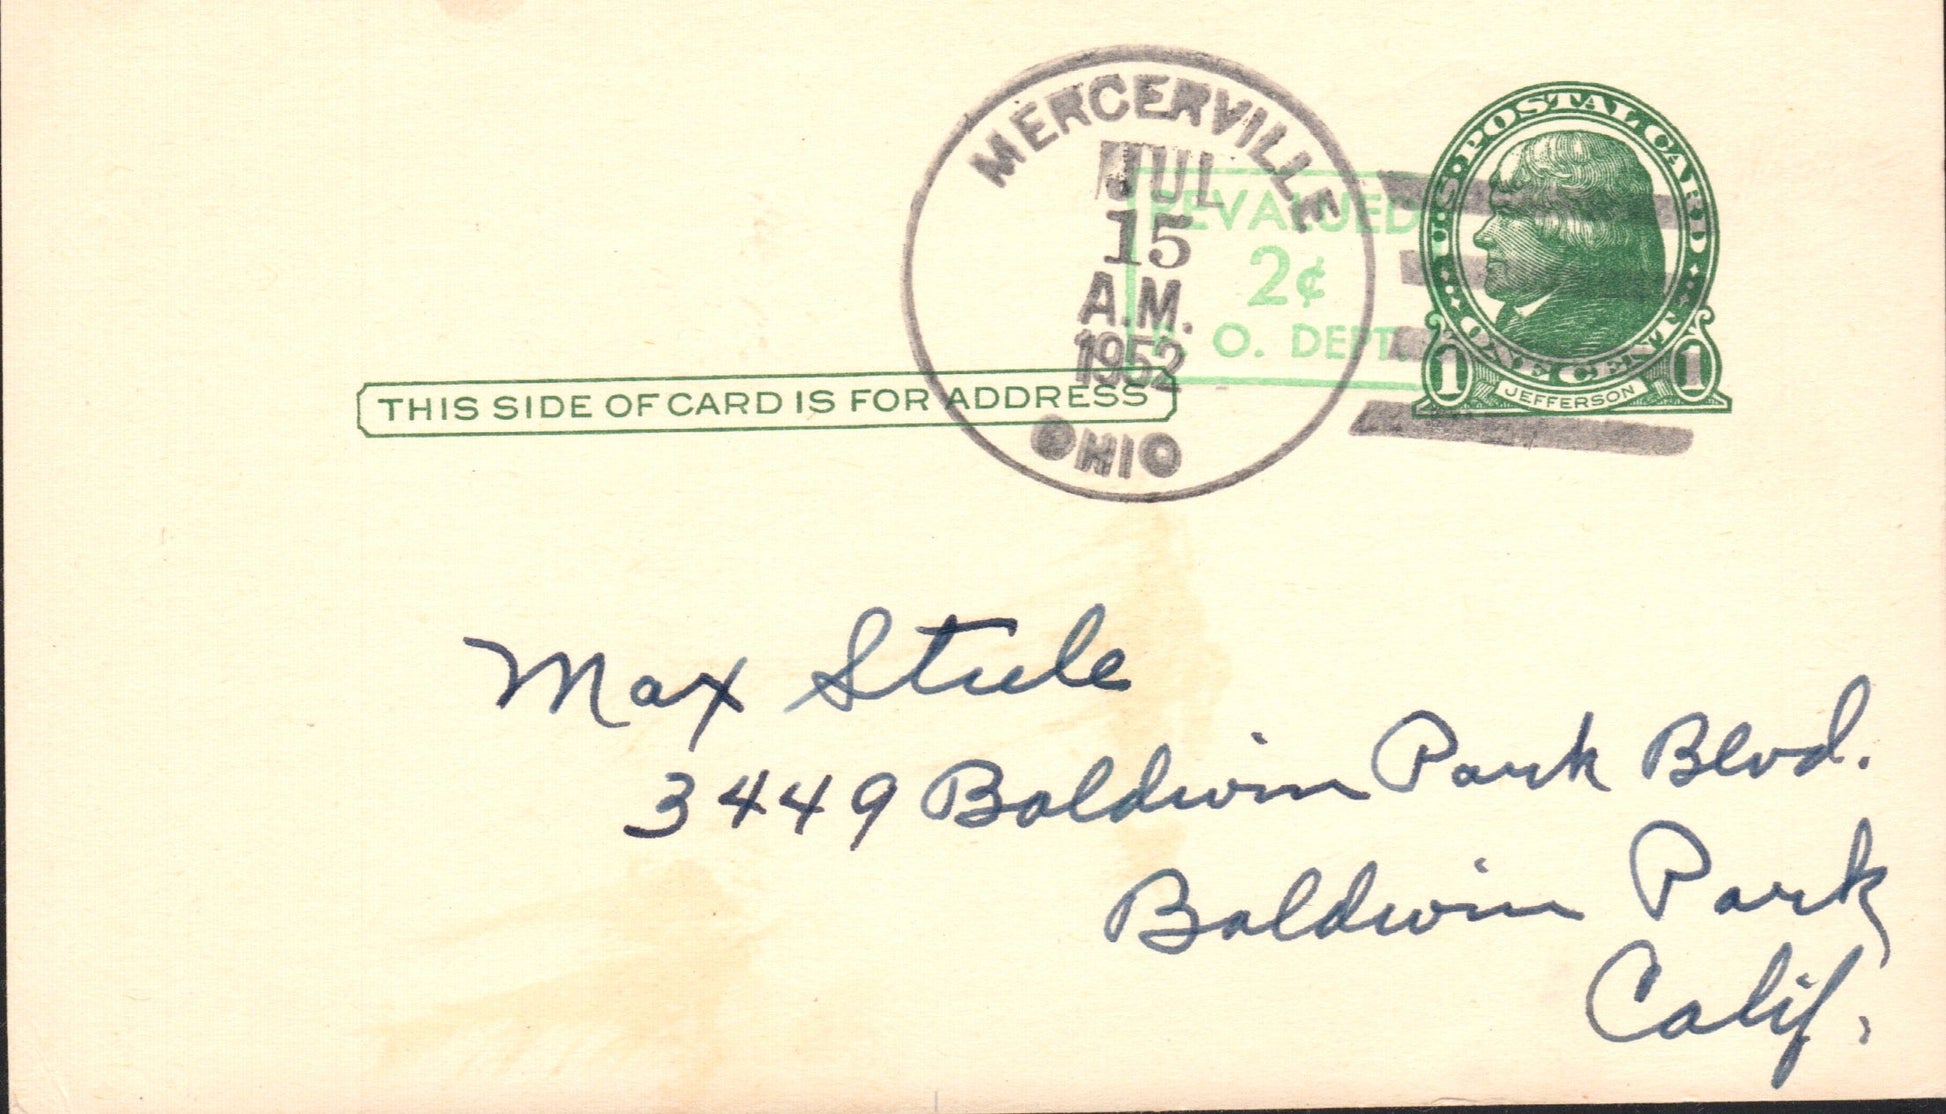 MERCERVILLE
JUL
15
A.M.
1952
OHIO
REVALUED
2¢
O. DEPT.
U.S. POSTAL CARD
ONE CENT
1 JEFFERSON 1
THIS SIDE OF CARD IS FOR ADDRESS
Max Stule
3449 Baldwin Park Blvd.
Baldwin Park
Calif.